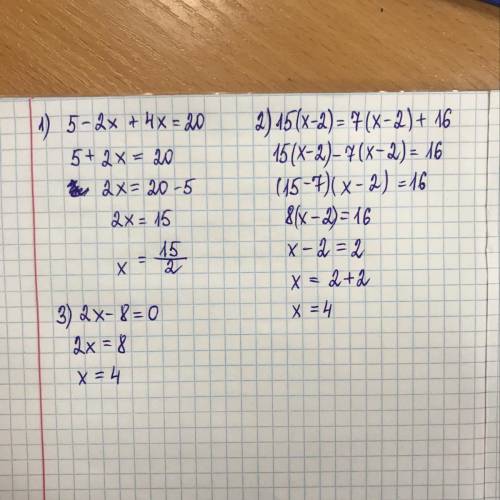 1) 5 - 2x + 4x = 20
5 + 2x = 20
2x = 20 - 5
2x = 15
x = 15/2
2) 15(x-2) = 7(x-2) + 16
15(x-2) - 7(x-2) = 16
(15-7)(x-2) = 16
8(x-2) = 16
x - 2 = 2
x = 2+2
x = 4
3) 2x - 8 = 0
2x = 8
x = 4